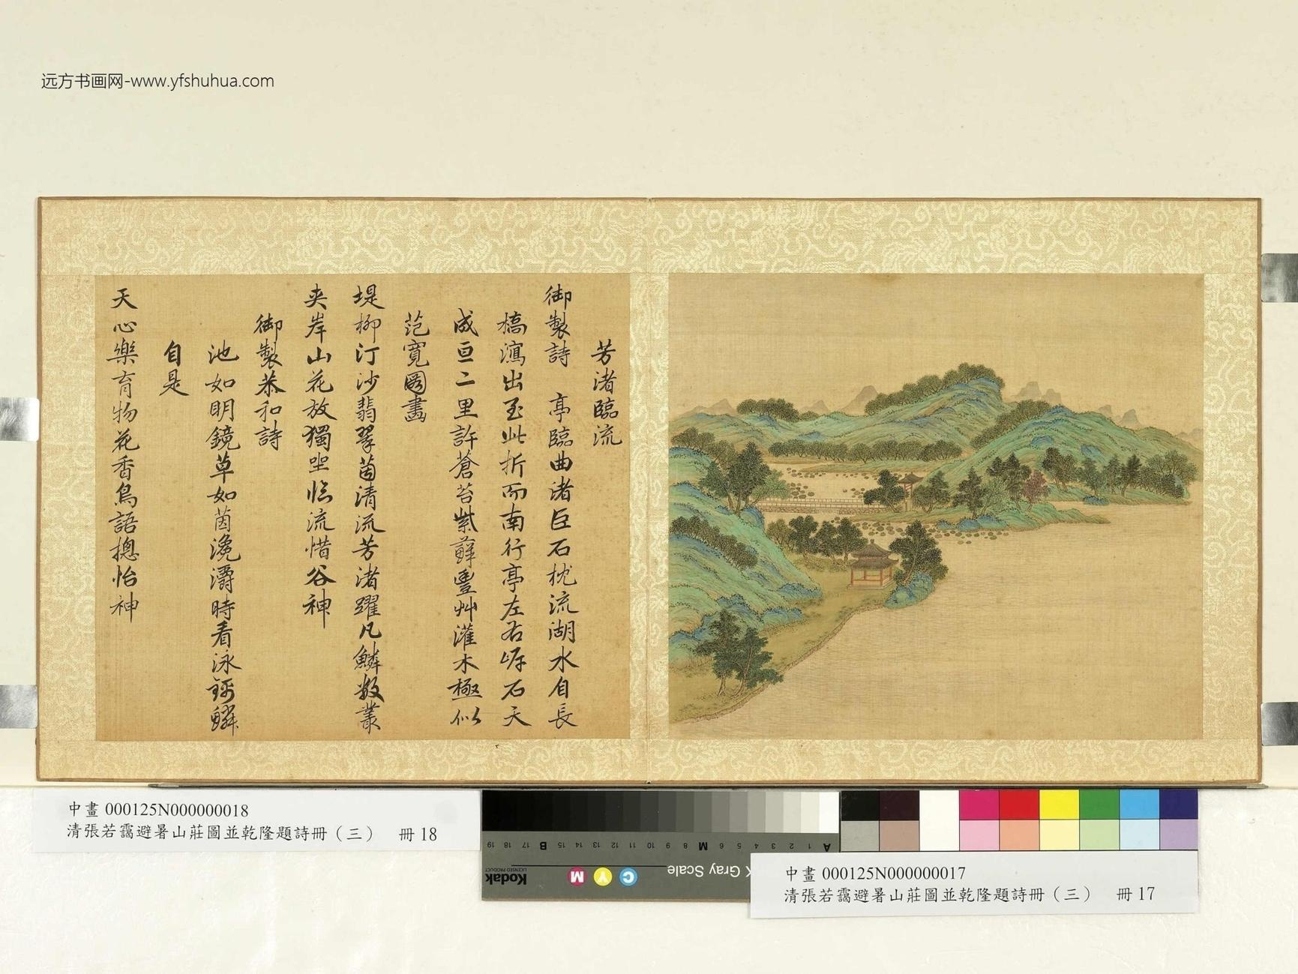 远方书画网-www.yfshuhua.com
芳渚臨流
御製詩 亭臨曲渚巨石枕流湖水自長
橋瀉出至此折而南行亭左右岸石天
成亘二里許蒼苔紫蘚豐艸灌木極似
范寬圖畫
堤柳汀沙翡翠茵清流芳渚躍凡鱗數叢
夾岸山花放獨坐臨流惜谷神
御製恭和詩
池如明鏡草如茵瀺灂時看泳錦鱗
自是
天心樂育物花香鳥語摠怡神
中畫 000125N000000018
清張若靄避暑山莊圖並乾隆題詩冊（三） 冊 18
中畫 000125N000000017
清張若靄避暑山莊圖並乾隆題詩冊（三） 冊 17
A 1 2 3 4 5 6 M 8 9 10 11 12 13 14 15 B 17 18 19
Kodak
LICENSED PRODUCT
C Y M
K Gray Scale